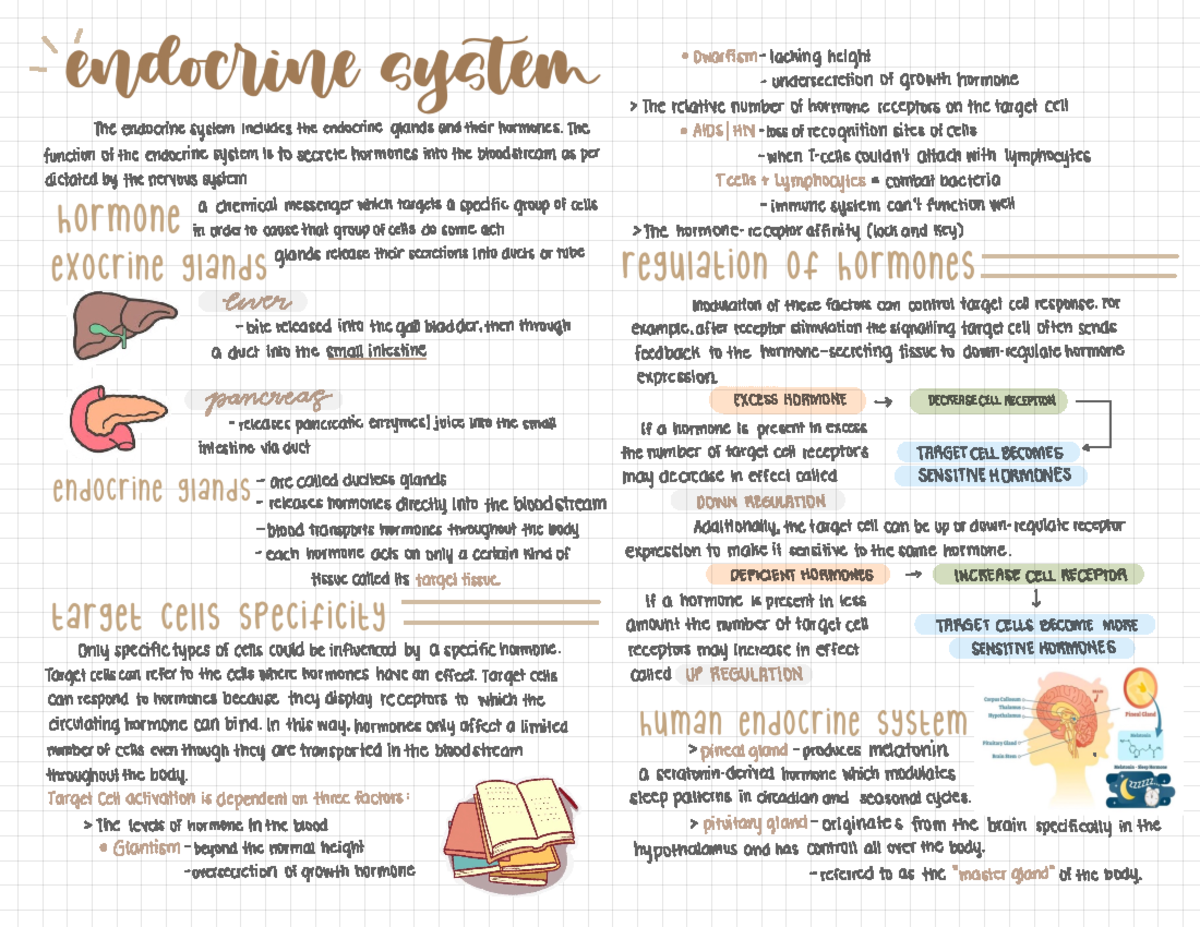 endocrine system
The endocrine system includes the endocrine glands and their hormones. The
function of the endocrine system is to secrete hormones into the bloodstream as per
dictated by the nervous system
hormone
a chemical messenger which targets a specific group of cells
in order to cause that group of cells do some ach
exocrine glands
glands release their secretions into ducts or tube
liver
- bile released into the gall bladder, then through
a duct into the small intestine
pancreas
- releases pancreatic enzymes] juice into the small
intestine via duct
endocrine glands
- are called ductless glands
- releases hormones directly into the bloodstream
- blood transports hormones throughout the body
- each hormone acts on only a certain kind of
tissue called its target tissue.
target cells specificity
Only specific types of cells could be influenced by a specific hormone.
Target cells can refer to the cells where hormones have an effect. Target cells
can respond to hormones because they display receptors to which the
circulating hormone can bind. In this way, hormones only affect a limited
number of cells even though they are transported in the bloodstream
throughout the body.
Target Cell activation is dependent on three factors:
> The levels of hormone in the blood
• Giantism - beyond the normal height
- oversecretion of growth hormone
• Dwarfism - lacking height
- undersecretion of growth hormone
> The relative number of hormone receptors on the target cell
• AIDS|HIV - loss of recognition sites of cells
- when T-cells couldn't attach with lymphocytes
T cells + Lymphocytes = combat bacteria
- immune system can't function well
> The hormone-receptor affinity (lock and key)
regulation of hormones
Modulation of these factors can control target cell response. For
example, after receptor stimulation the signalling target cell often sends
feedback to the hormone-secreting tissue to down-regulate hormone
expression.
EXCESS HORMONE → DECREASE CELL RECEPTION
If a hormone is present in excess
the number of target cell receptors
may decrease in effect called
DOWN REGULATION
TARGET CELL BECOMES
SENSITIVE HORMONES
Additionally, the target cell can be up or down-regulate receptor
expression to make it sensitive to the same hormone.
DEFICIENT HORMONES → INCREASE CELL RECEPTOR
↓
If a hormone is present in less
amount the number of target cell
receptors may increase in effect
called UP REGULATION
TARGET CELLS BECOME MORE
SENSITIVE HORMONES
human endocrine system
> pineal gland - produces melatonin
a seratonin-derived hormone which modulates
sleep patterns in circadian and seasonal cycles.
Corpus Callosum
Thalamus
Hypothalamus
Pituitary Gland
Brain Stem
Pineal Gland
Melatonin
Melatonin - Sleep Hormone
> pituitary gland - originates from the brain specifically in the
hypothalamus and has controll all over the body.
- referred to as the "master gland" of the body.